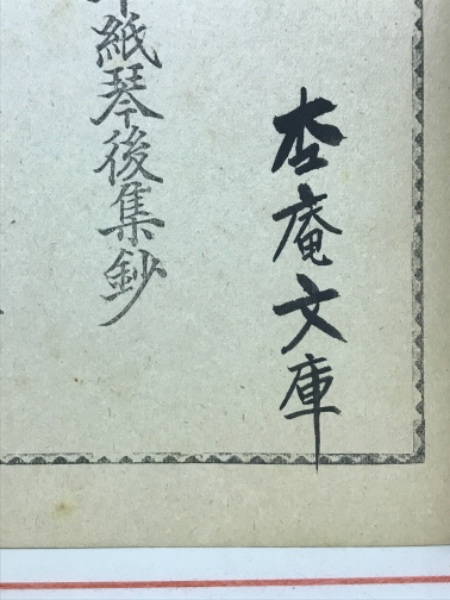 杢庵文庫
紙琴後集鈔